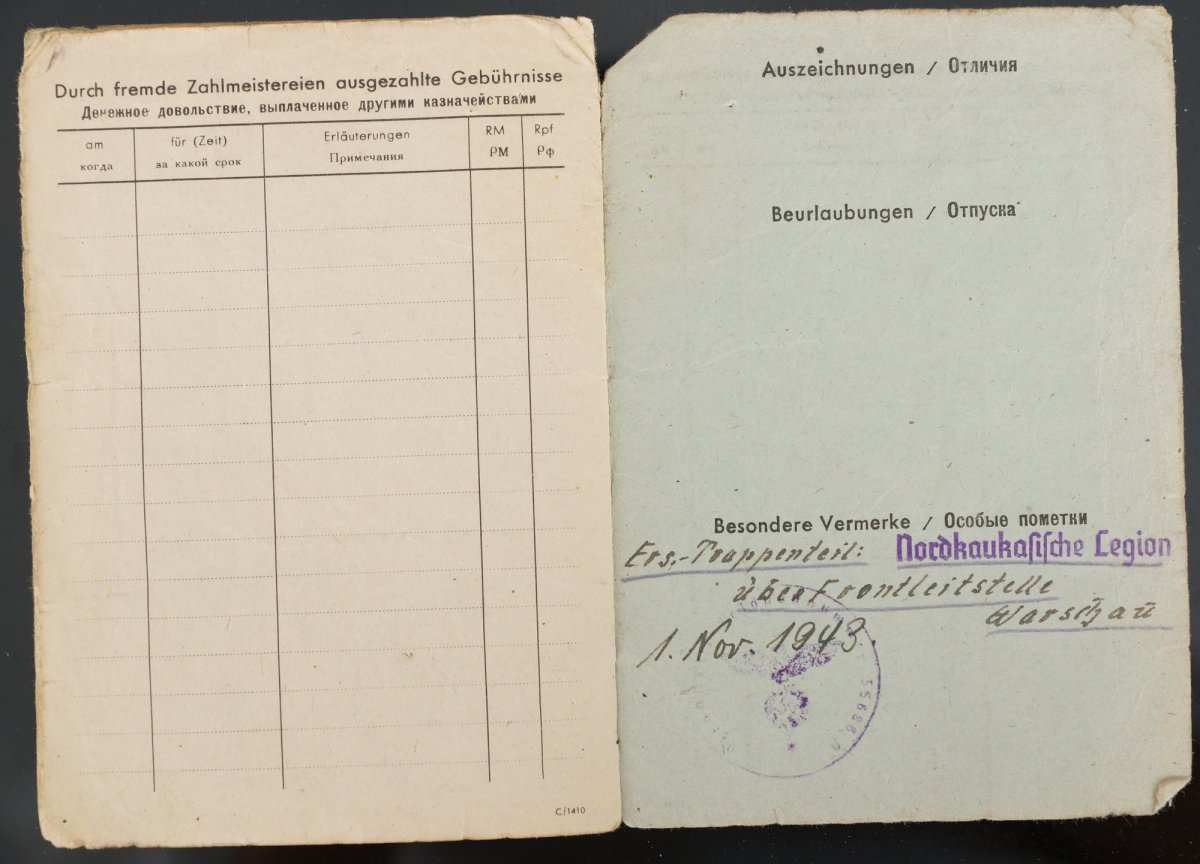 Durch fremde Zahlmeistereien ausgezahlte Gebührnisse
Денежное довольствие, выплаченное другими казначействами
am
когда
für (Zeit)
за какой срок
Erläuterungen
Примечания
RM
РМ
Rpf
Рф
C/1410
Auszeichnungen / Отличия
Beurlaubungen / Отпуска
Besondere Vermerke / Особые пометки
Ers.-Truppenteil: Nordkaukasische Legion
über Frontleitstelle
Warschau
1. Nov. 1943.